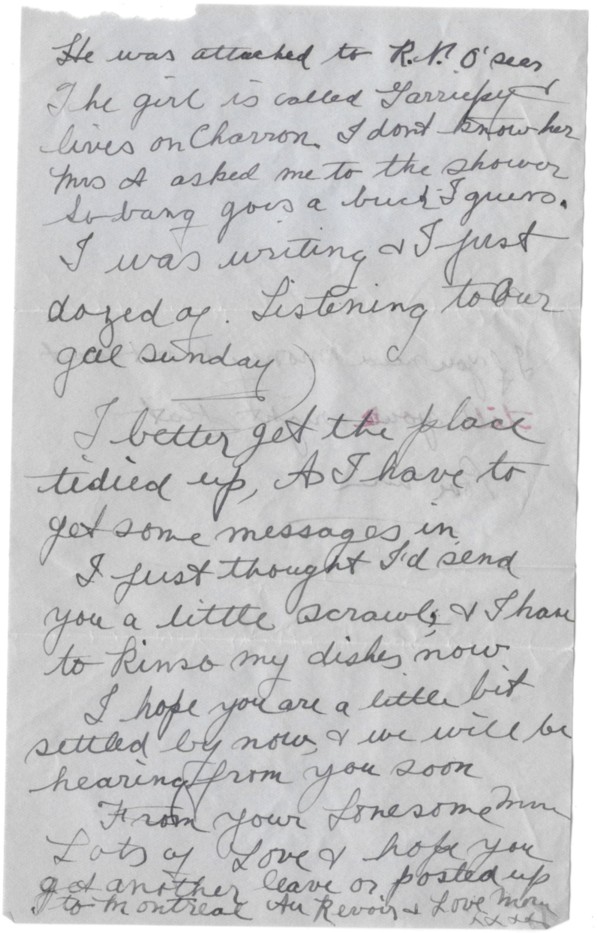 He was attached to R.N. O'seas
The girl is called Garriepy &
lives on Charron. I dont know her
Mrs A asked me to the shower
So bang goes a buck I guess.
I was writing & I just
dozed of. Listening to Our
gal sunday)
I better get the place
tidied up, As I have to
get some messages in
I just thought I'd send
you a little scrawl, & I have
to Rinso my dishes now
I hope you are a little bit
settled by now, & we will be
hearing from you soon
From your Lonesome Mum
Lots of Love & hope you
get another leave or posted up
to Montreal Au Revoir & Love Mom
xxxx